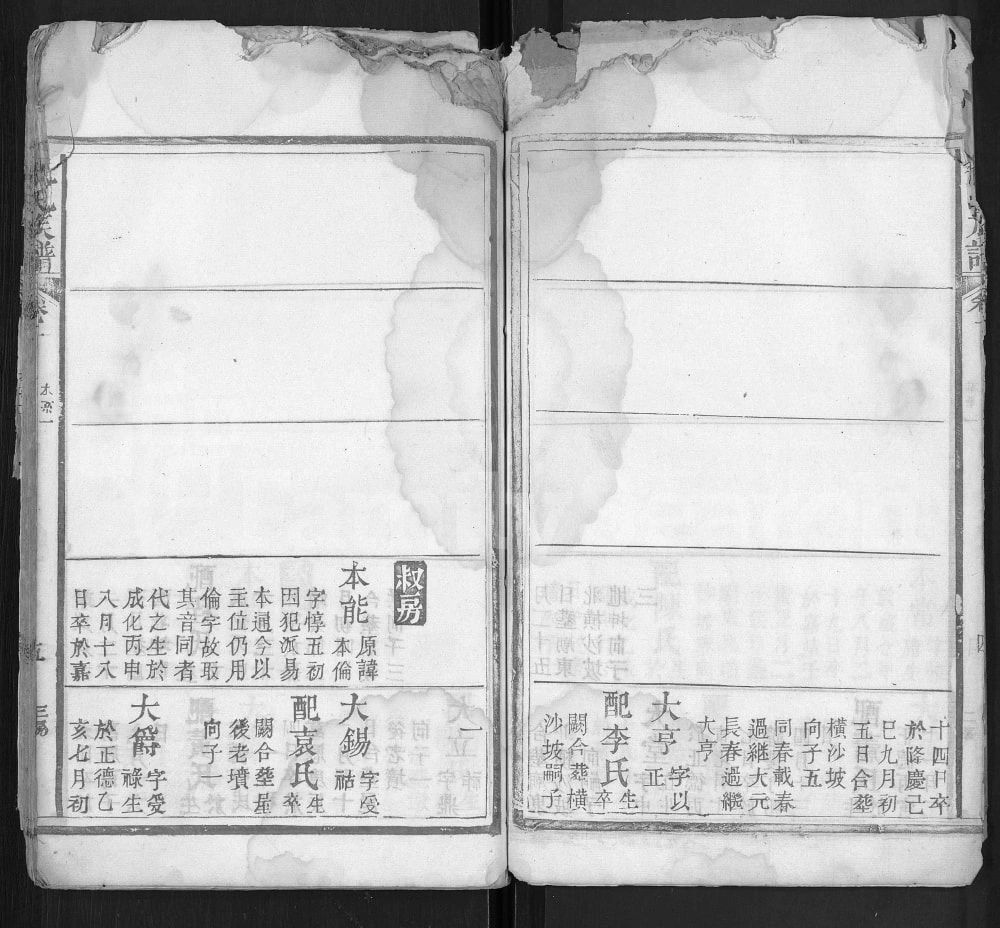 十四日卒
於隆慶己
巳九月初
五日合塟
橫沙坡
向子五
同春載春
過繼大元
長春過繼
大亨
大亨字以正
配李氏生卒
闕合塟橫
沙坡嗣子
四
叔房
本能原諱本倫
字惇五初
因犯派易
本通今以
主位仍用
倫字故取
其音同者
代之生於
成化丙申
八月十八
日卒於嘉
大錫字受祜
配袁氏生卒
闕合塟屋
後老墳
向子一
大爵字受祿生
於正德乙
亥七月初
氏族譜
卷一
五